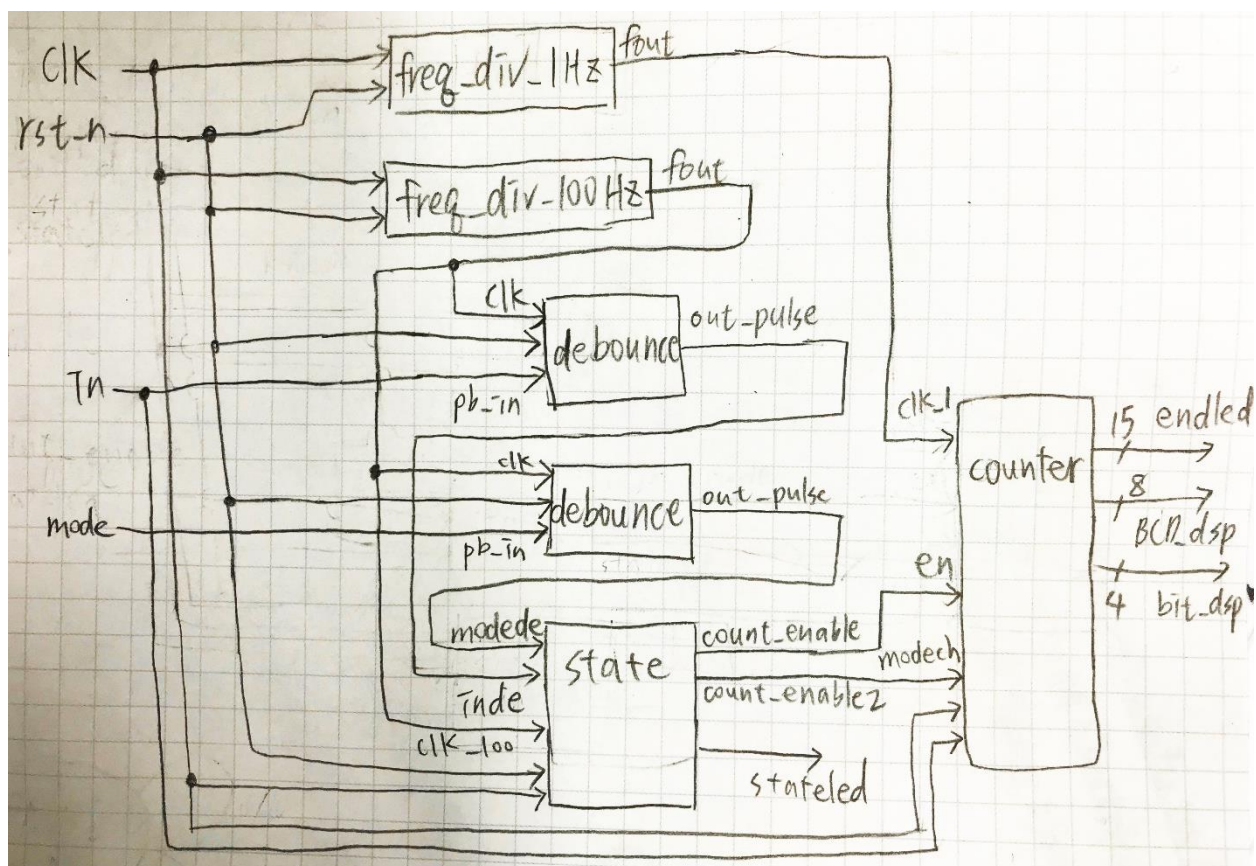 clk
rst_n
in
mode
freq_div_1Hz
fout
freq_div_100Hz
fout
clk
debounce
out_pulse
pb_in
clk
debounce
out_pulse
pb_in
modede
inde
clk_100
state
count_enable
count_enable2
stateled
clk_1
en
modech
counter
15 endled
8
BCD_dsp
4 bit_dsp